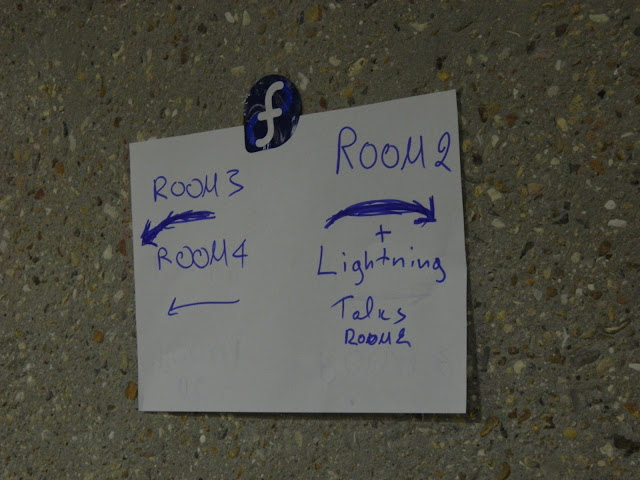 f
ROOM 3
ROOM 4
ROOM 2
+
Lightning
Talks
ROOM 2